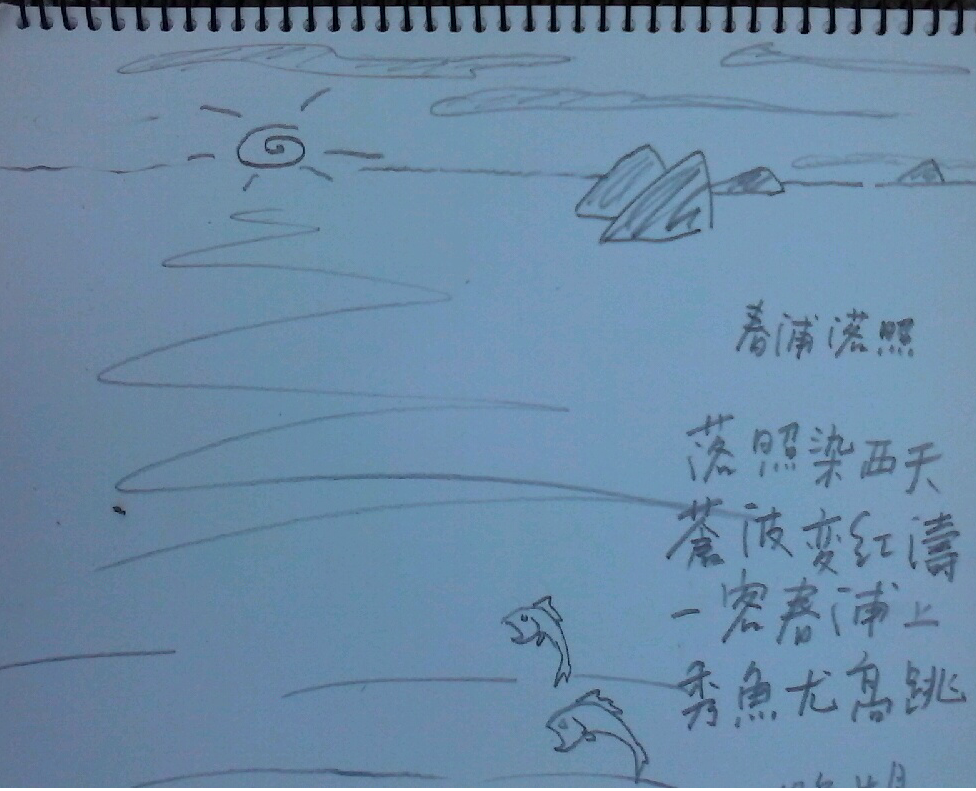 春浦落照
落照染西天
蒼波変紅濤
一客春浦上
秀魚尤高跳